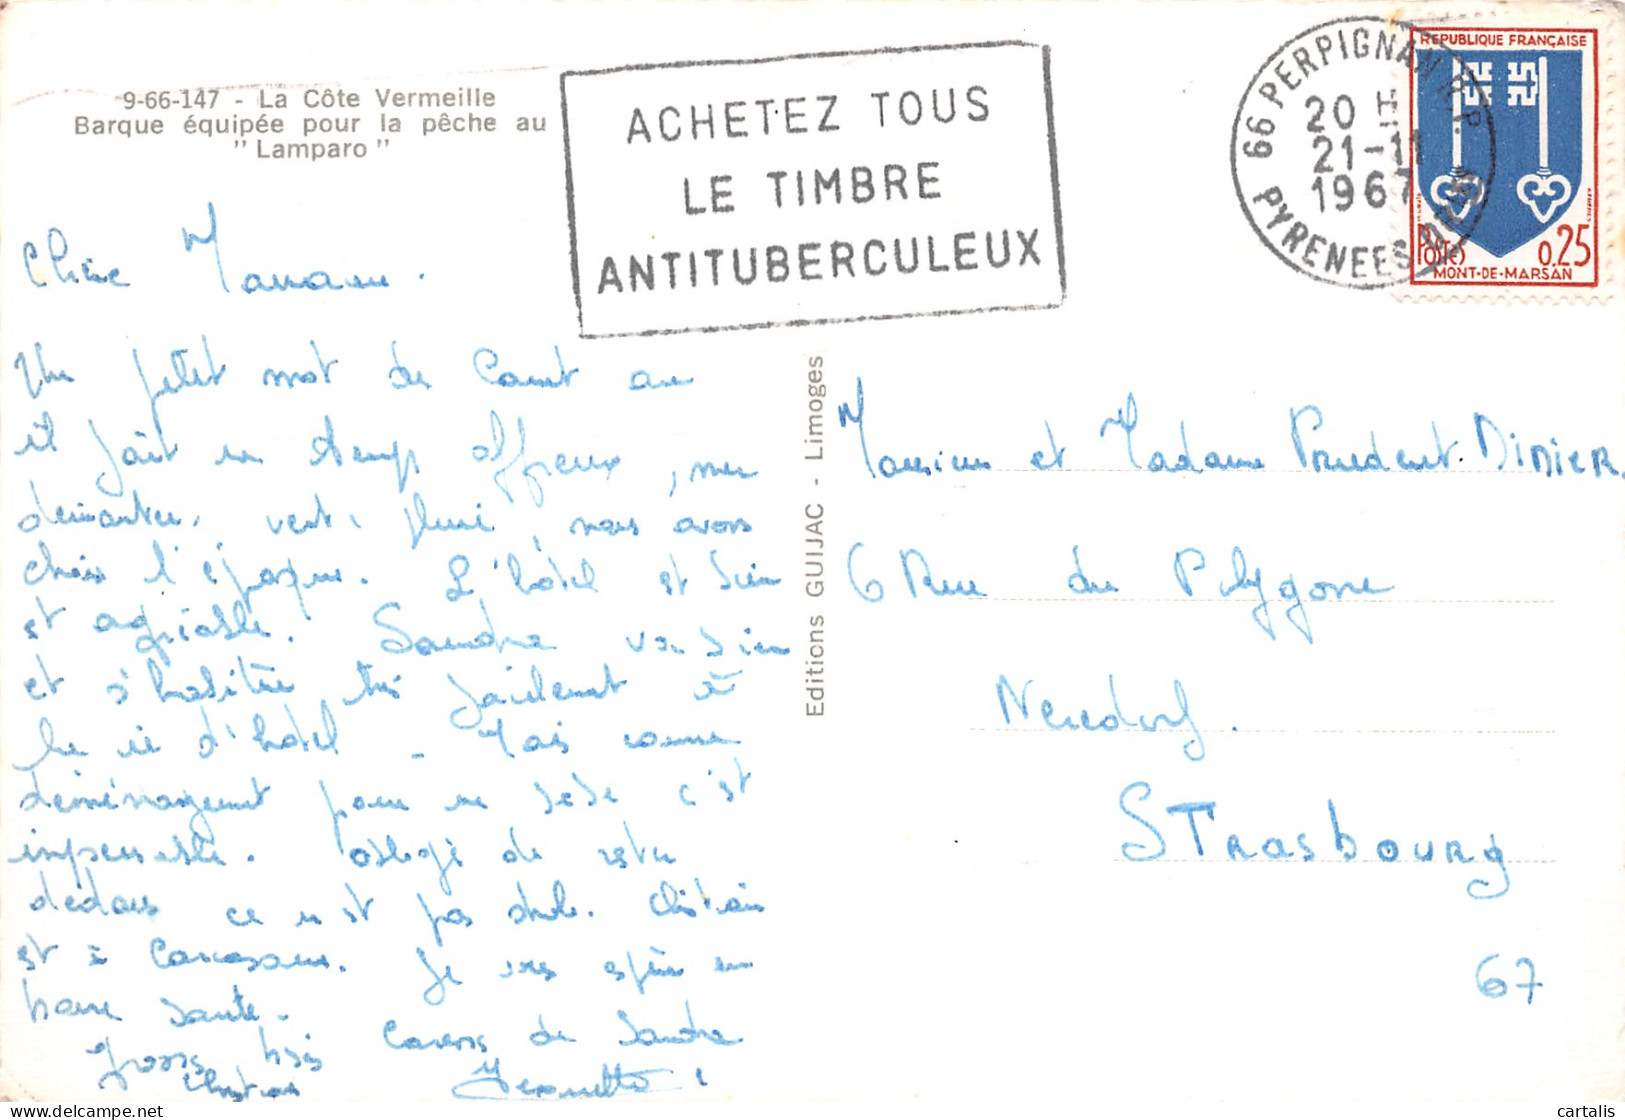 9-66-147 - La Côte Vermeille
Barque équipée pour la pêche au
" Lamparo "
ACHETEZ TOUS
LE TIMBRE
ANTITUBERCULEUX
66 PERPIGNAN R.P.
20 H
21-11
1967
PYRENEES
REPUBLIQUE FRANÇAISE
POSTES 0,25
MONT-DE-MARSAN
Chère Maman.
Un petit mot de Canet ou
il fait un temps affreux, mer
démontée, vent, pluie nous avons
choisi l'époque. L'hôtel est bien
et agréable. Sandra va bien
et s'habitue très facilement à
la vie d'hôtel - Mais comme
déménagement pour un bébé c'est
impensable. obligé de rester
dedans ce n'est pas drôle. Christian
est à Carcassonne. Je vous espère en
bonne santé.
Gross bisis Caresses de Sandra
Christian Jeannette
Editions GUIJAC - Limoges
Monsieur et Madame Prudent. DIDIER.
6 Rue du Polygone
Neudorf.
STrasbourg
67
cartalis
delcampe.net